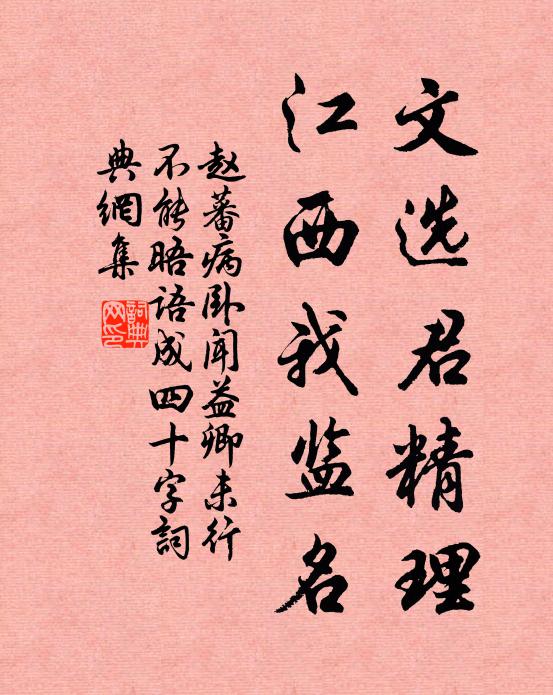 文选君精理
江西我监名
赵蕃病卧闻益卿未行
不能晤语成四十字词
典網集
詞典网印